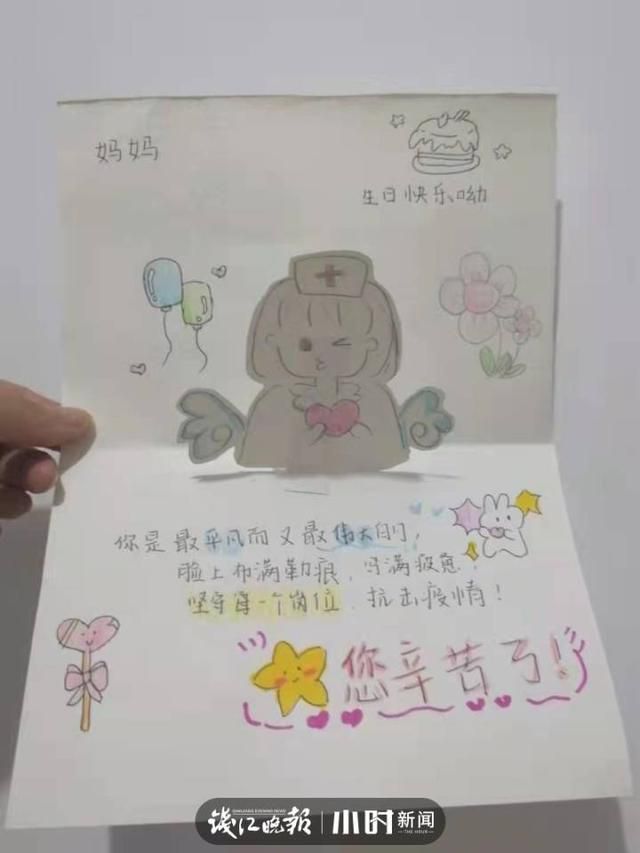 妈妈
生日快乐呦
你是最平凡而又最伟大的,
脸上布满勒痕,写满疲惫,
坚守每一个岗位,抗击疫情!
您辛苦了!
钱江晚报 小时新闻
QIANJIANG EVENING NEWS THE HOUR